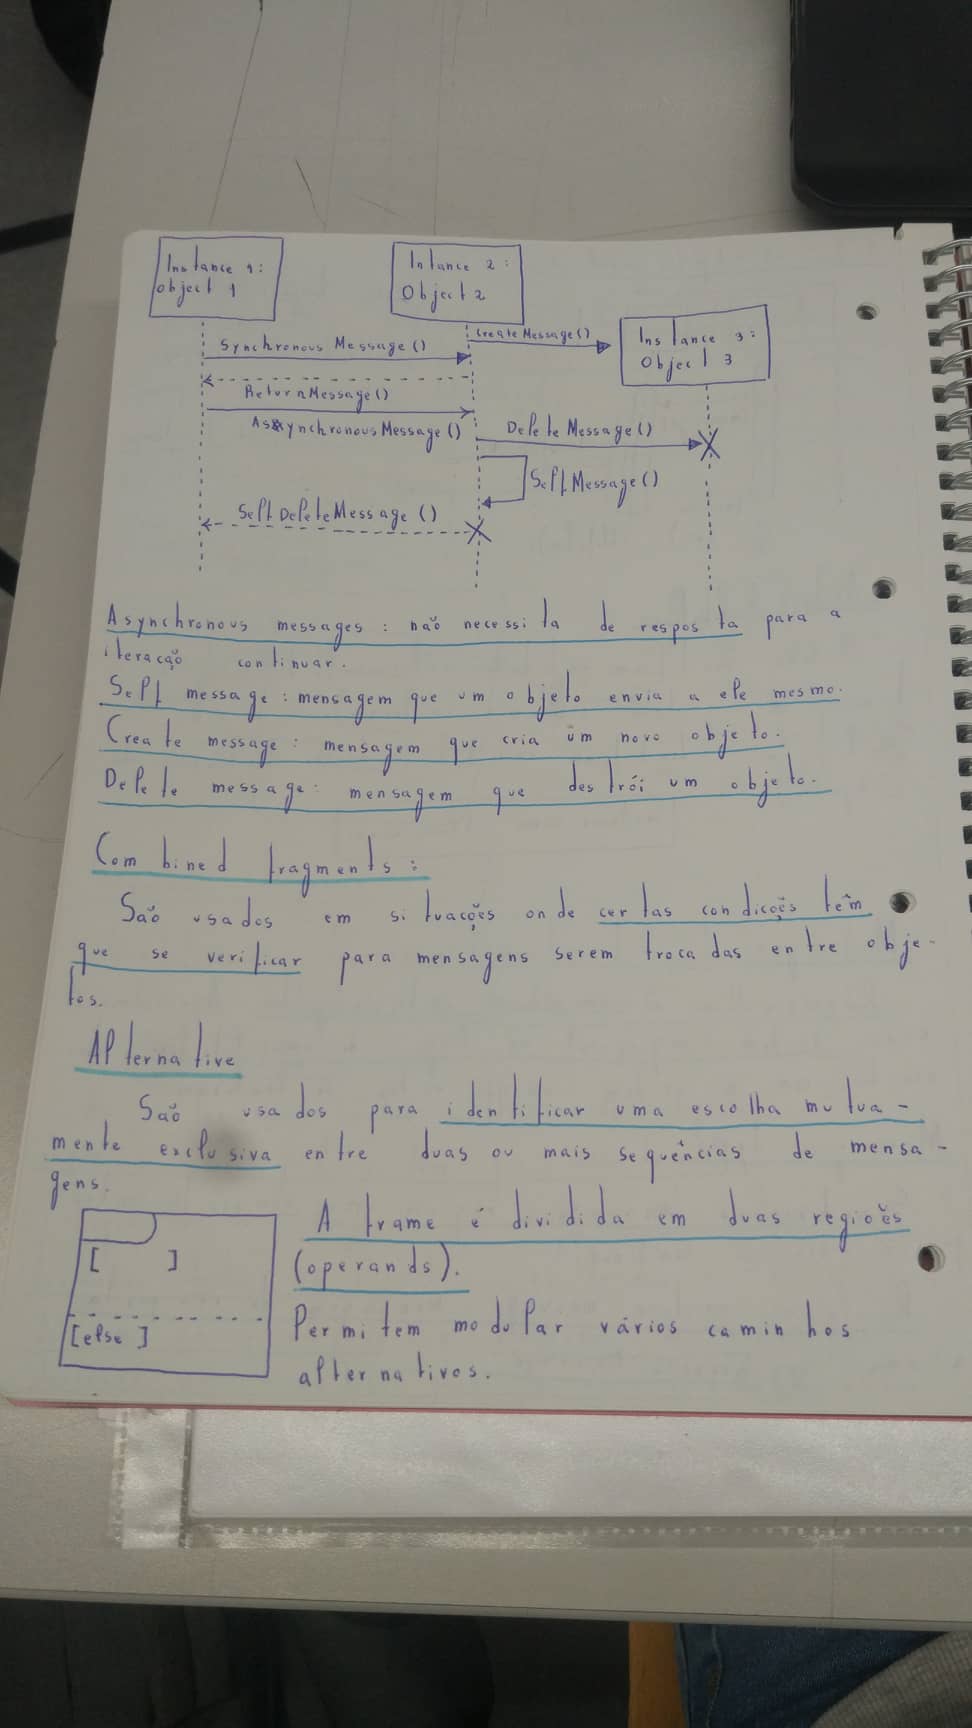 Instance 1:
Object 1
Intance 2:
Object 2
CreateMessage()
Instance 3:
Object 3
Synchronous Message()
ReturnMessage()
AsynchronousMessage()
DeleteMessage()
SelfMessage()
SelfDeleteMessage()
Asynchronous messages: não necessita de resposta para a
iteração continuar.
Self message: mensagem que um objeto envia a ele mesmo.
Create message: mensagem que cria um novo objeto.
Delete message: mensagem que destrói um objeto.
Combined fragments:
São usados em situações onde certas condições têm
que se verificar para mensagens serem trocadas entre obje-
tos.
Alternative
São usados para identificar uma escolha mutua-
mente exclusiva entre duas ou mais sequências de mensa-
gens.
A frame é dividida em duas regiões
(operands).
[ ]
[else]
Permitem modular vários caminhos
alternativos.